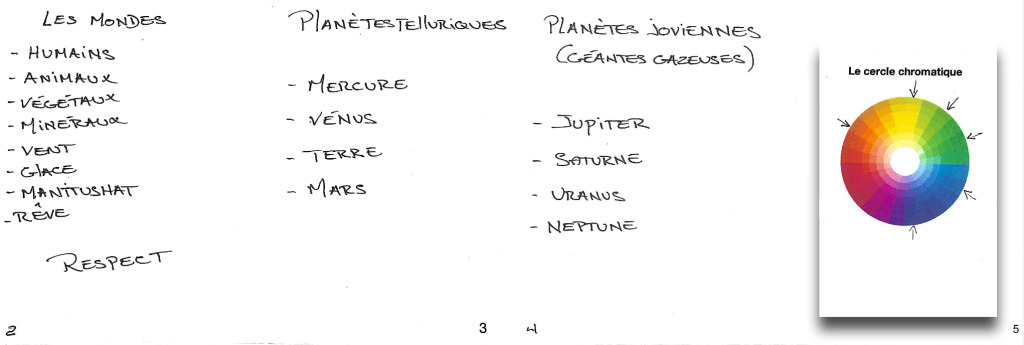 LES MONDES
- HUMAINS
- ANIMAUX
- VÉGÉTAUX
- MINÉRAUX
- VENT
- GLACE
- MANITUSHAT
- RÊVE
RESPECT
2
PLANÈTES TELLURIQUES
- MERCURE
- VÉNUS
- TERRE
- MARS
3
PLANÈTES JOVIENNES
(GÉANTES GAZEUSES)
- JUPITER
- SATURNE
- URANUS
- NEPTUNE
4
Le cercle chromatique
5